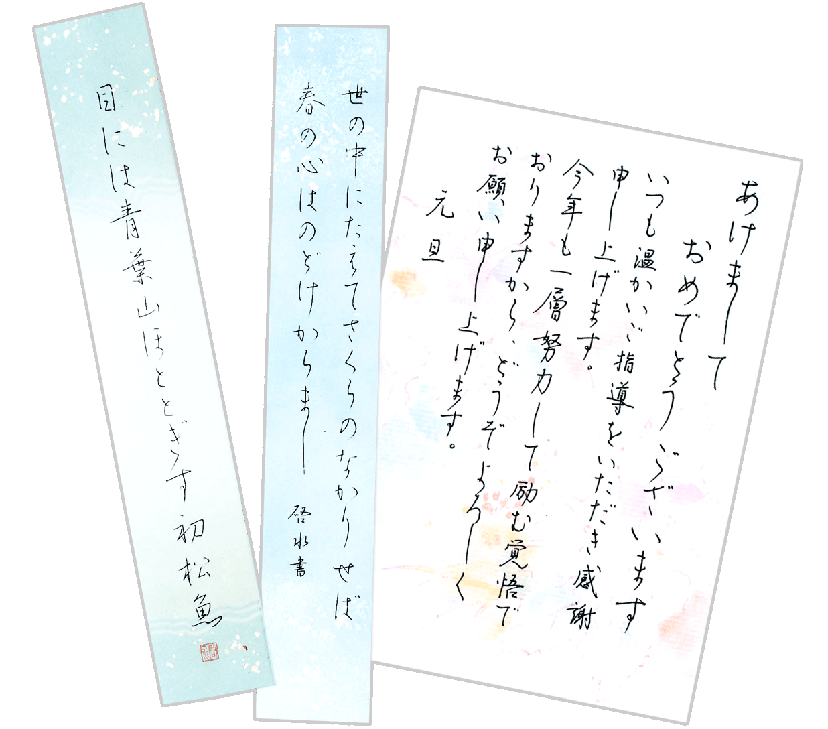 あけまして
おめでとうございます
いつも温かいご指導をいただき感謝
申し上げます。
今年も一層努力して励む覚悟で
おりますから、どうぞよろしく
お願い申し上げます。
元旦
世の中にたえてさくらのなかりせば
春の心はのどけからまし
啓水書
目には青葉山ほととぎす初松魚